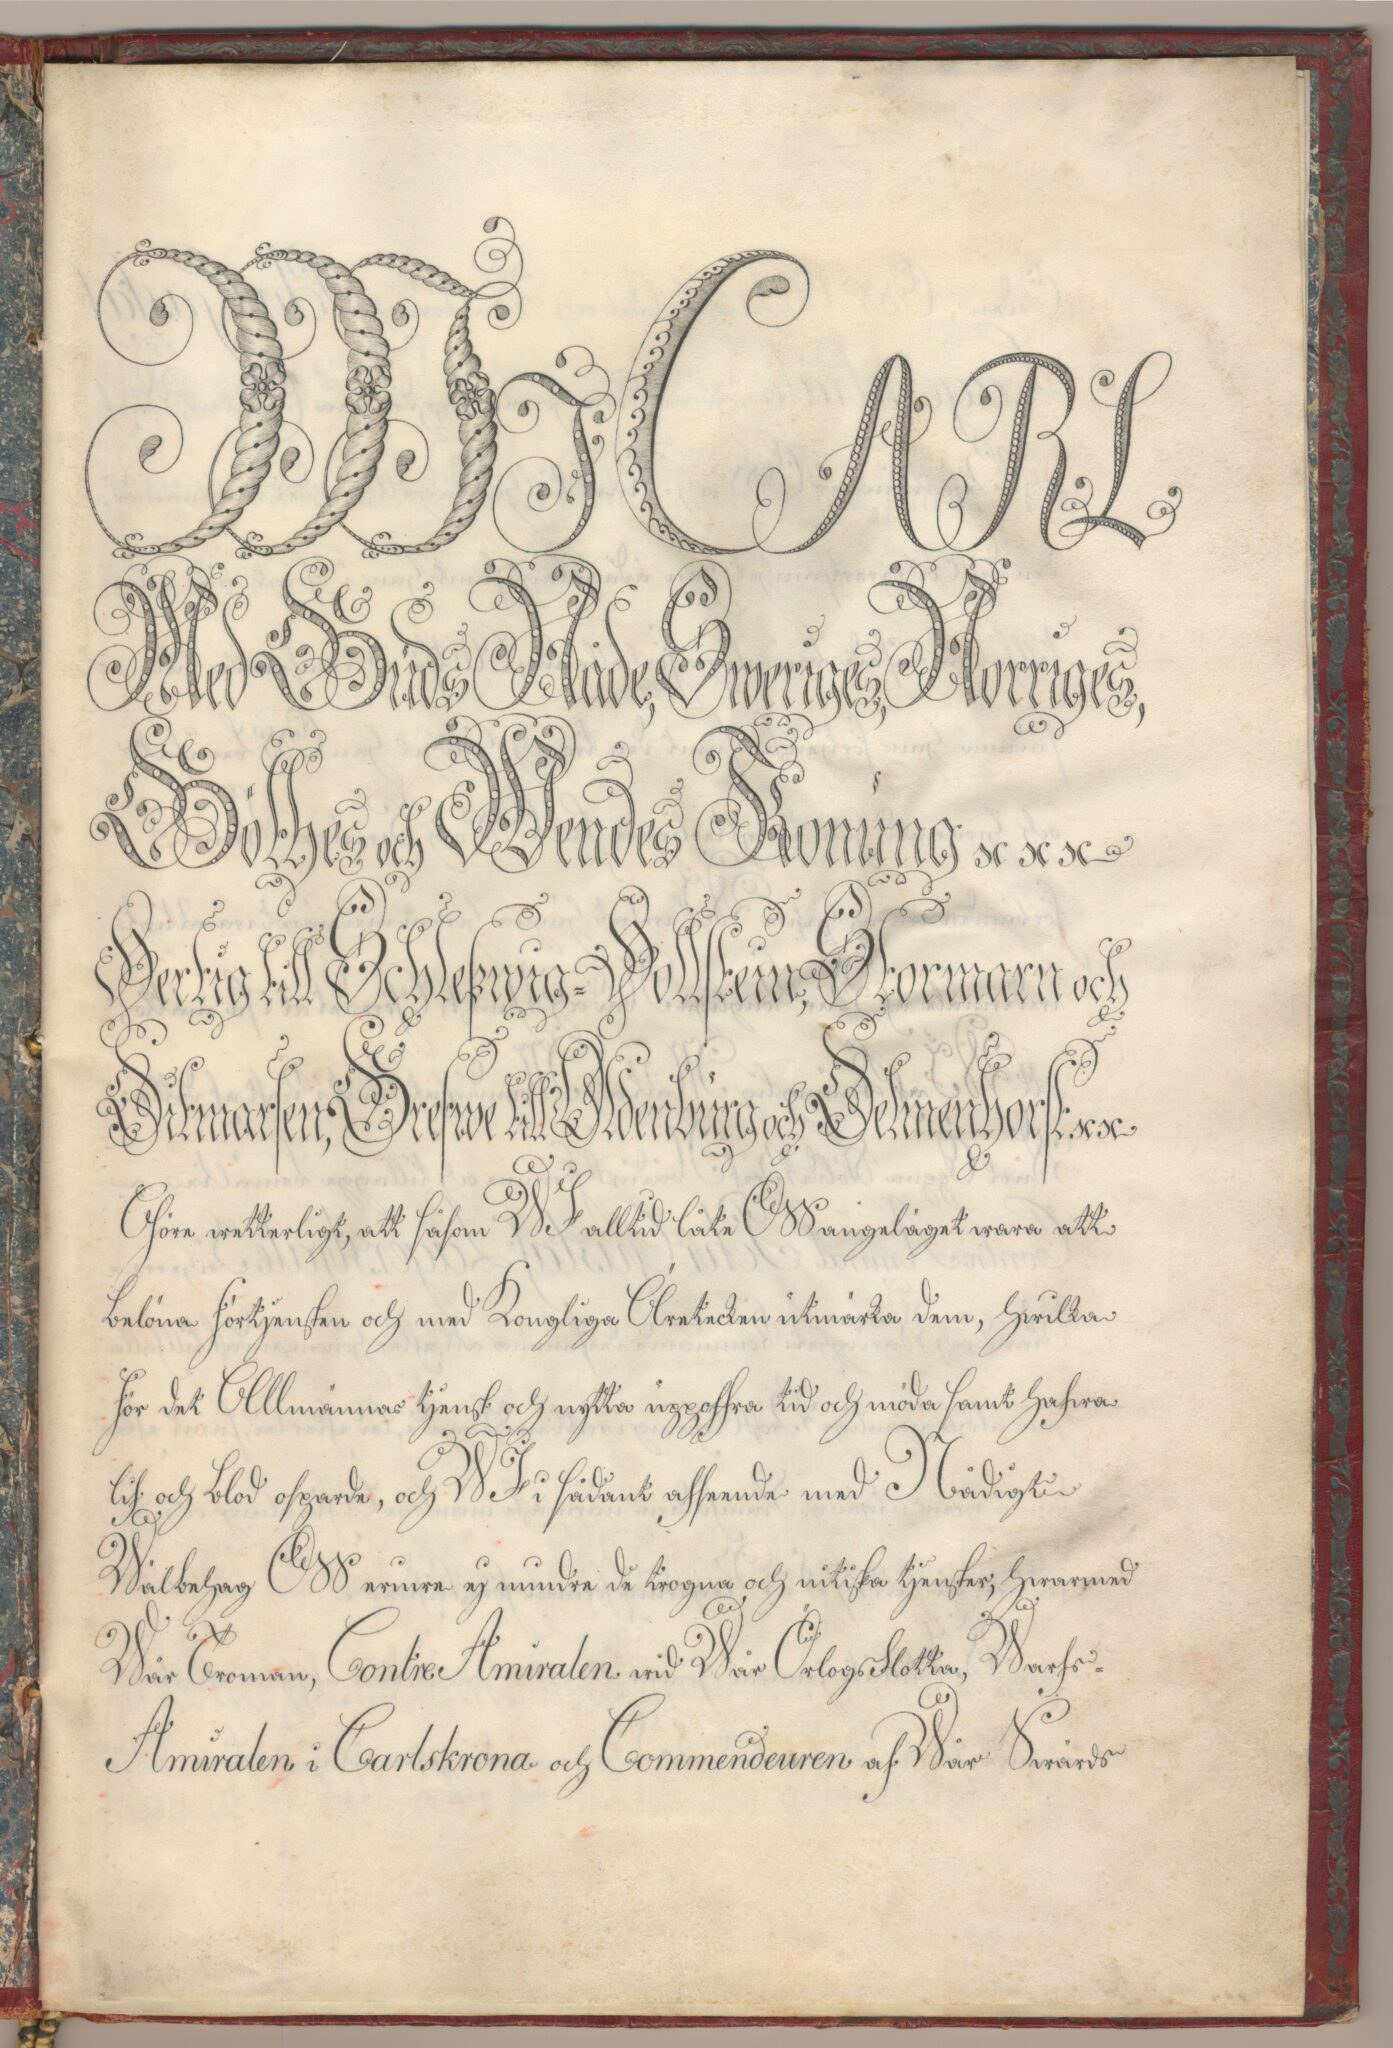 Wi CARL
Med Guds Nåde, Sweriges, Norriges,
Göthes och Wendes Konung &c &c &c
Hertig till Schleßwig-Hollstein, Stormarn och
Ditmarsen, Grefwe till Oldenburg och Delmenhorst &c &c
Göre wetterligt, att såsom WI alltid låte OSS angeläget wara att
belöna förtjensten och med Kongliga Äretecken utmärka dem, hwilka
för det Allmännas tjenst och nytta uppoffra tid och möda samt hafwa
lif och blod ospards, och WI i sådant afseende med Nådigt
Wälbehag OSS erinre ej mindre de trogna och nitiska tjenster, hwarmed
Wår Troman, Contre Amiralen wid Wår Örlogs Flotta, Warfs-
Amiralen i Carlskrona och Commendeuren af Wår Swärds